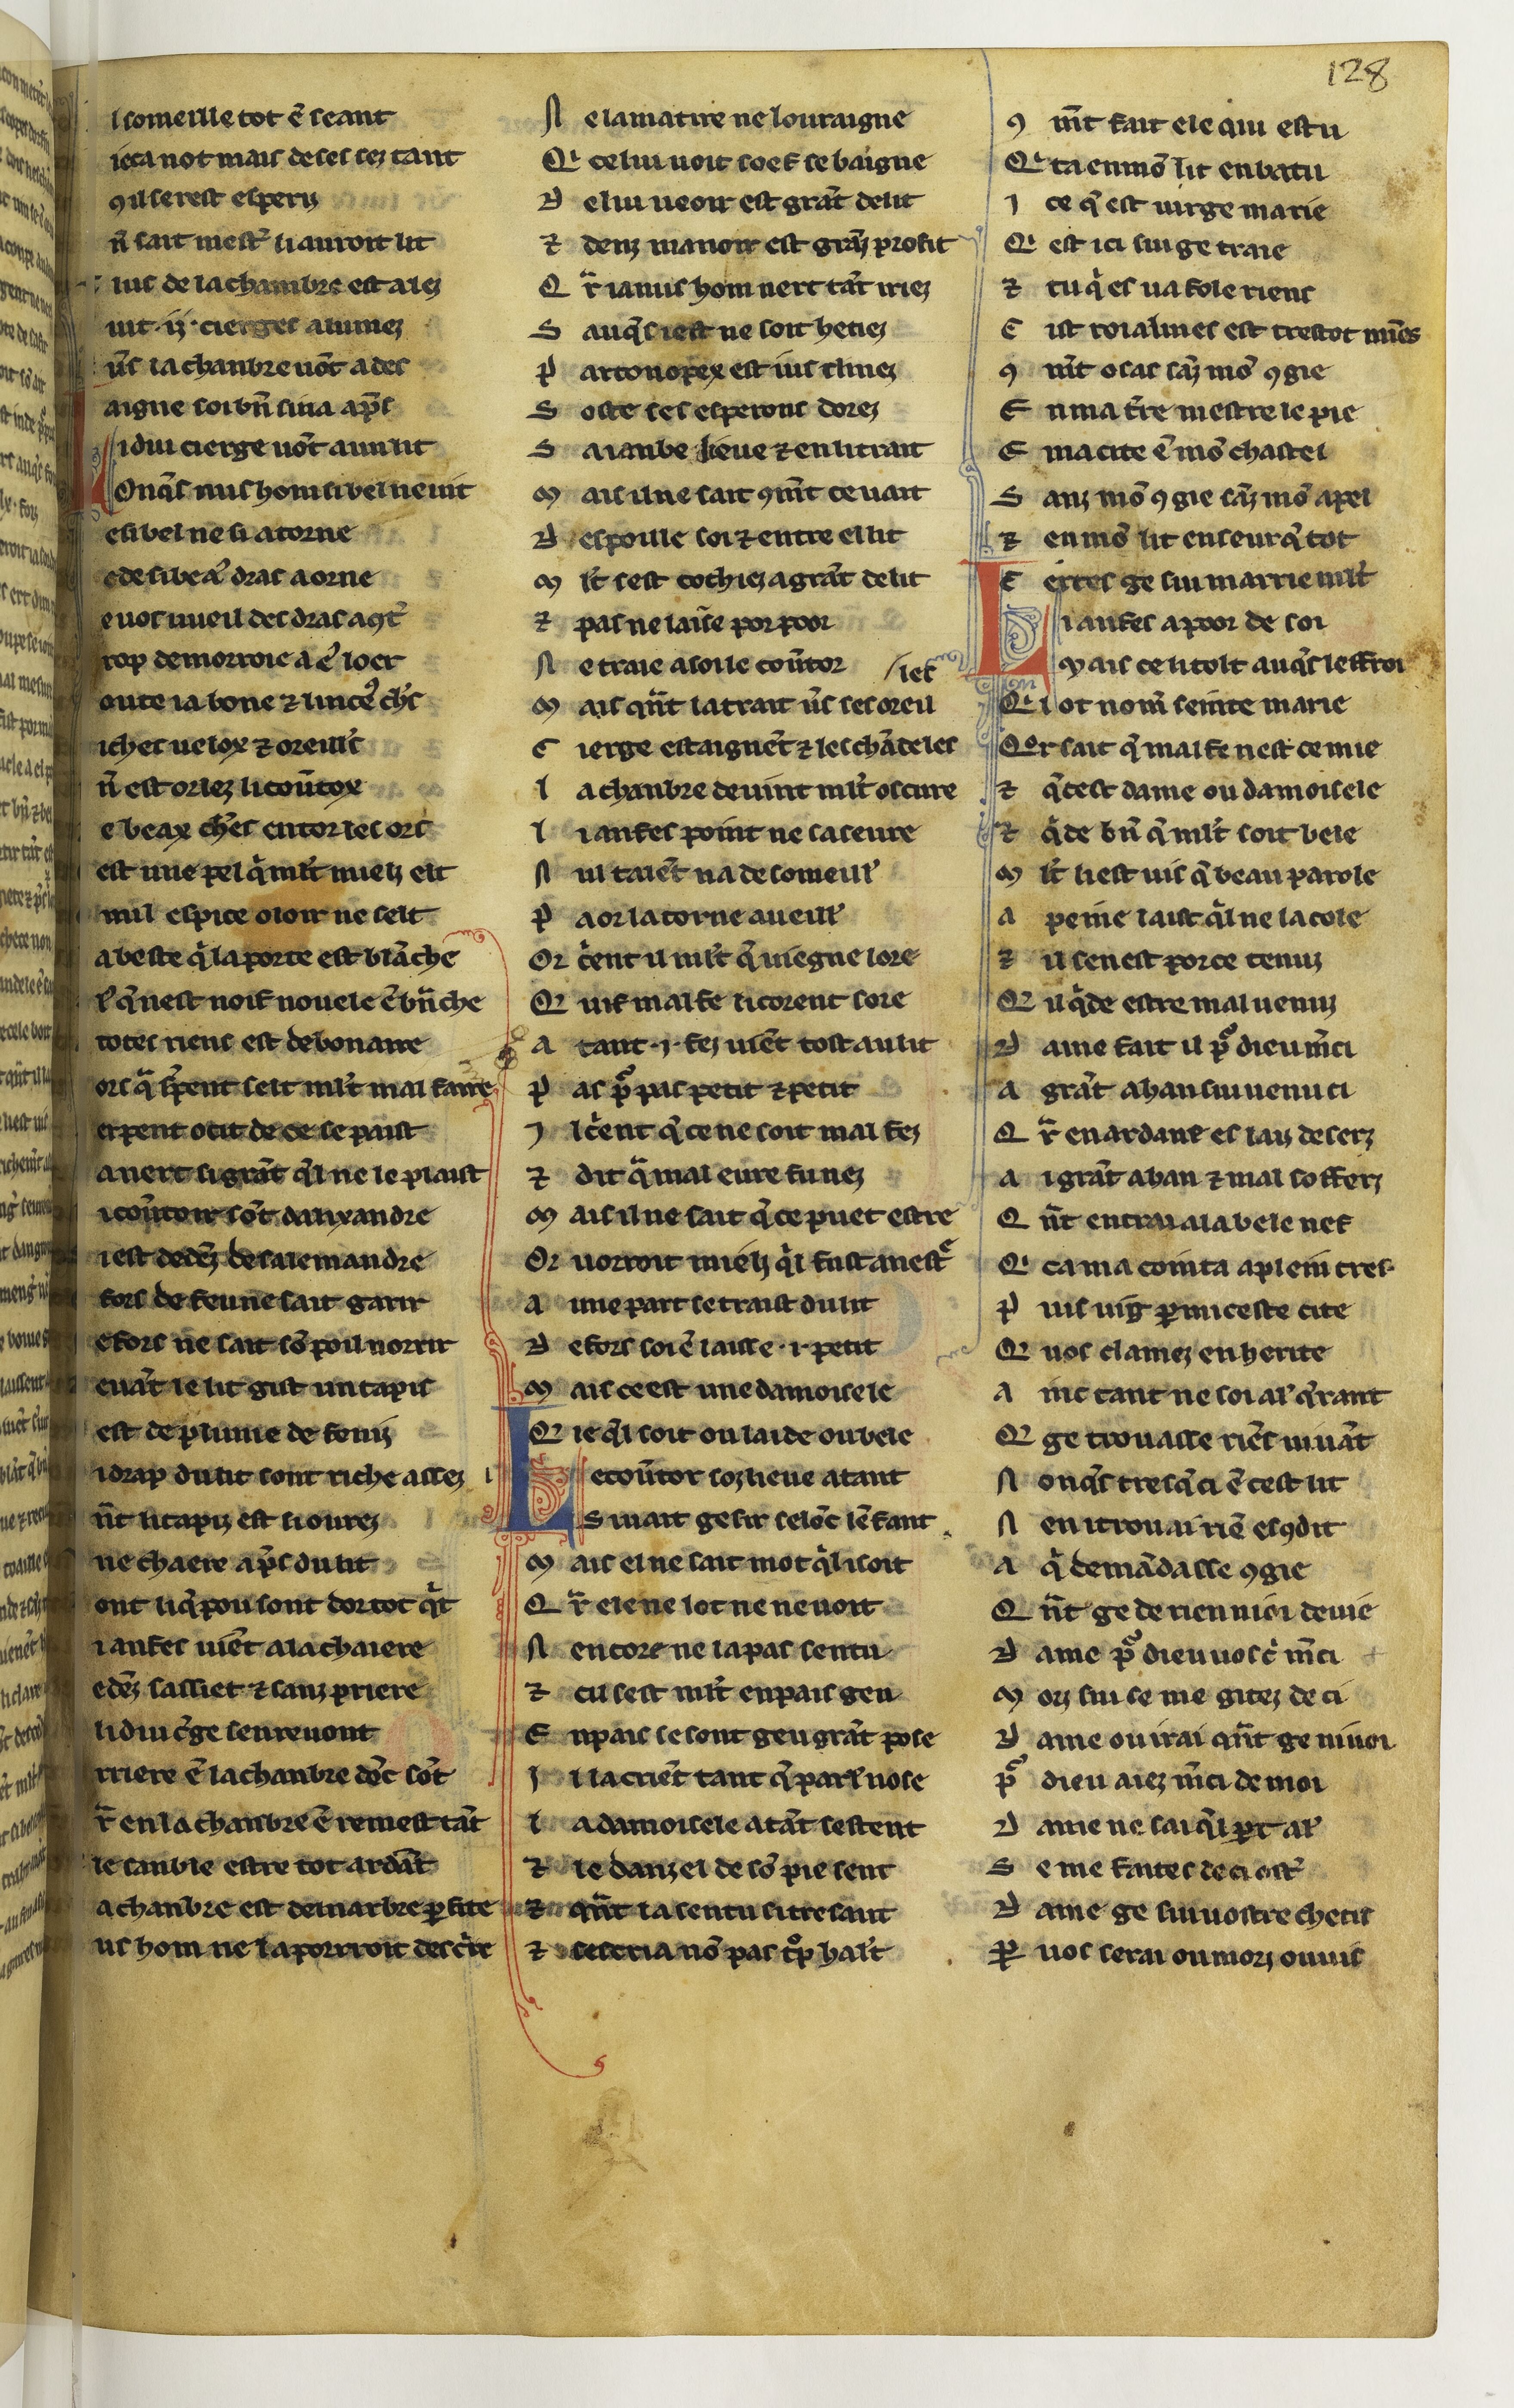 128
l someille tot ē seant
ieca not mais de ses sez tant
qil se rest esperiz
n̄ sait mestͬ li auroit lit
iuc de la chambre est alez
uit .ij. cierges alumez
ūs la chanbre uōt ades
aigne soi bn̄ sina ap̄s
i dui cierge uōt au lit
Onq̄s nus hom si bel ne uit
e si bel ne si atorne
e de si beaͧ dras aorne
e uos uueil des dras aqͬt
rop demorroie a ē loer
oute la bone z linceͧ ch̾s
iches uelox z oreill̾s
n̄ est orlez li cou̾tox
e beax ch̾es entor les ors
est une pel qͥ ml̾t mielz elt
mil espice oloir ne selt
a beste qͥ la porte est blāche
l̾ q̄ nest noif nouele ē brāche
totes riens est debonaire
ors qͣ s̾pent selt ml̾t mal faire
erpent ocit de ce se paist
a nert si grāt qͥl ne le plaist
i cou̾toir sōt dalixandre
i est dedēz de salemandre
fors de feu ne sait garir
e fors ne sait sō poil norrir
euāt le lit gist un tapis
est de plume de fenis
i drap du lit sont riche assez
n̄t li tapiz est si ourez
ne chaere ap̄s du lit
ont li qͣ pou sont dor tot qͥt
i anfes uiēt a la chaiere
edēz sassiet z sanz priere
li dui c̾ge sen reuont
rriere ē la chanbre dōc sōt
r̄ en la chanbre ē remest tāt
le sanble estre tot ardāt
a chanbre est de marbre p̱fite
us hom ne la porroit desc̾re
N e la matire ne louraigne
Qi celui uoit soef se baigne
D e lui ueoir est grāt delit
z denz manoir est grāz profit
Q r̄ ia nus hom nert tāt iriez
S auq̄s i est ne soit hetiez
P artonopex est ius clinez
S oste ses esperons dorez
S a ianbe lieue z en litrait
M ais il ne sait qm̄t ce uait
D espoille soi z entre el lit
M l̾t sest cochiez a grāt delit
z pas ne laisse por poor
N e traie a soi le cou̾tor
M ais qn̄t la trait u̾s ses oreil/les
C ierge estaignēt z les chādeles
L a chanbre deuint ml̾t oscure
L i anfes point ne saseure
N ul talēt na de someill̾
P aor latorne a ueill̾
Or c̾ent il ml̾t q̄ uiegne lore
Q uif malfe li corent sore
A tant .i. fez uiēt tost au lit
P as pͦ pas petit z petit
I l c̾ent q̄ ce ne soit malfez
z dit qͣ mal eure fu nez
M ais il ne sait q̄ ce puet estre
Or uorroit mielz qͥl fust a nestͬ
A une part se traist du lit
D e fors soi ē laisse .i. petit
M ais ce est une damoisele
Q ie qͥl soit ou laide ou bele
L e cou̾tor soz lieue atant
S i uait gesir selōc lēfant
M ais el ne sait mot qͥl i soit
Q r̄ ele ne lot ne ne uoit
N encore ne la pas sentu
z cil sest ml̾t en pais geu
E n pais se sont geu grāt pose
I l la criēt tant q̄ parl̾ nose
L a damoisele atāt sestent
z le danzel de sō pie sent
z qn̄t la sentu si tresaut
z sescria nō pas tͦp halt
q m̄t fait ele qui es tu
Qi ta en mō lit enbatu
I ce q̄ est uirge marie
Q i est ici sui ge traie
z tu qͥ es ua fole riens
C ist roialmes est trestot miēs
q m̄t osas sāz mō qgie
E n ma t̾re mestre le pie
E ma cite ē mō chastel
S anz mō qgie sāz mō apel
z en mō lit enseurq̄tot
C ertes ge sui marrie ml̾t
L i anfes a poor de soi
M ais ce li tolt auq̄s leffroi
Qi l ot nom̄ seinte marie
Q or sait q̄ malfe nest ce mie
z q̄ cest dame ou damoisele
z qͥde bn̄ q̄ ml̾t soit bele
M l̾t li est uis q̄ beau parole
A peine laist qͥl ne lacole
z il sen est por ce tenuz
Q il qͥde estre mal uenuz
D ame fait il pͦ dieu m̄ci
A grāt ahan sui uenu ci
Q r̄ en ardane es laiz deserz
A i grāt ahan z mal sofferz
Q n̄t entrai a la bele nef
Qi ca ma cointa a plein tref
P uis uig p̱mi ceste cite
Q uos clamez en herite
A inc tant ne soi al̾ q̄rant
Q ge trouasse riēs uiuāt
N onq̄s tresq̄ ci ē cest lit
N en i trouai riē escͦdit
A qͥ demādasse qgie
Q n̄t ge de rien ni oi deuie
D ame pͦ dieu uos c̾ m̄ci
M orz sui se me gitez de ci
D ame ou irai qn̄t ge ni uoi
Pͦ dieu aiez m̄ci de moi
D ame ne sai qͥl part al̾
S e me faites de ci ostͬ
D ame ge sui uostre chetis
P̱ uos serai ou morz ou uis